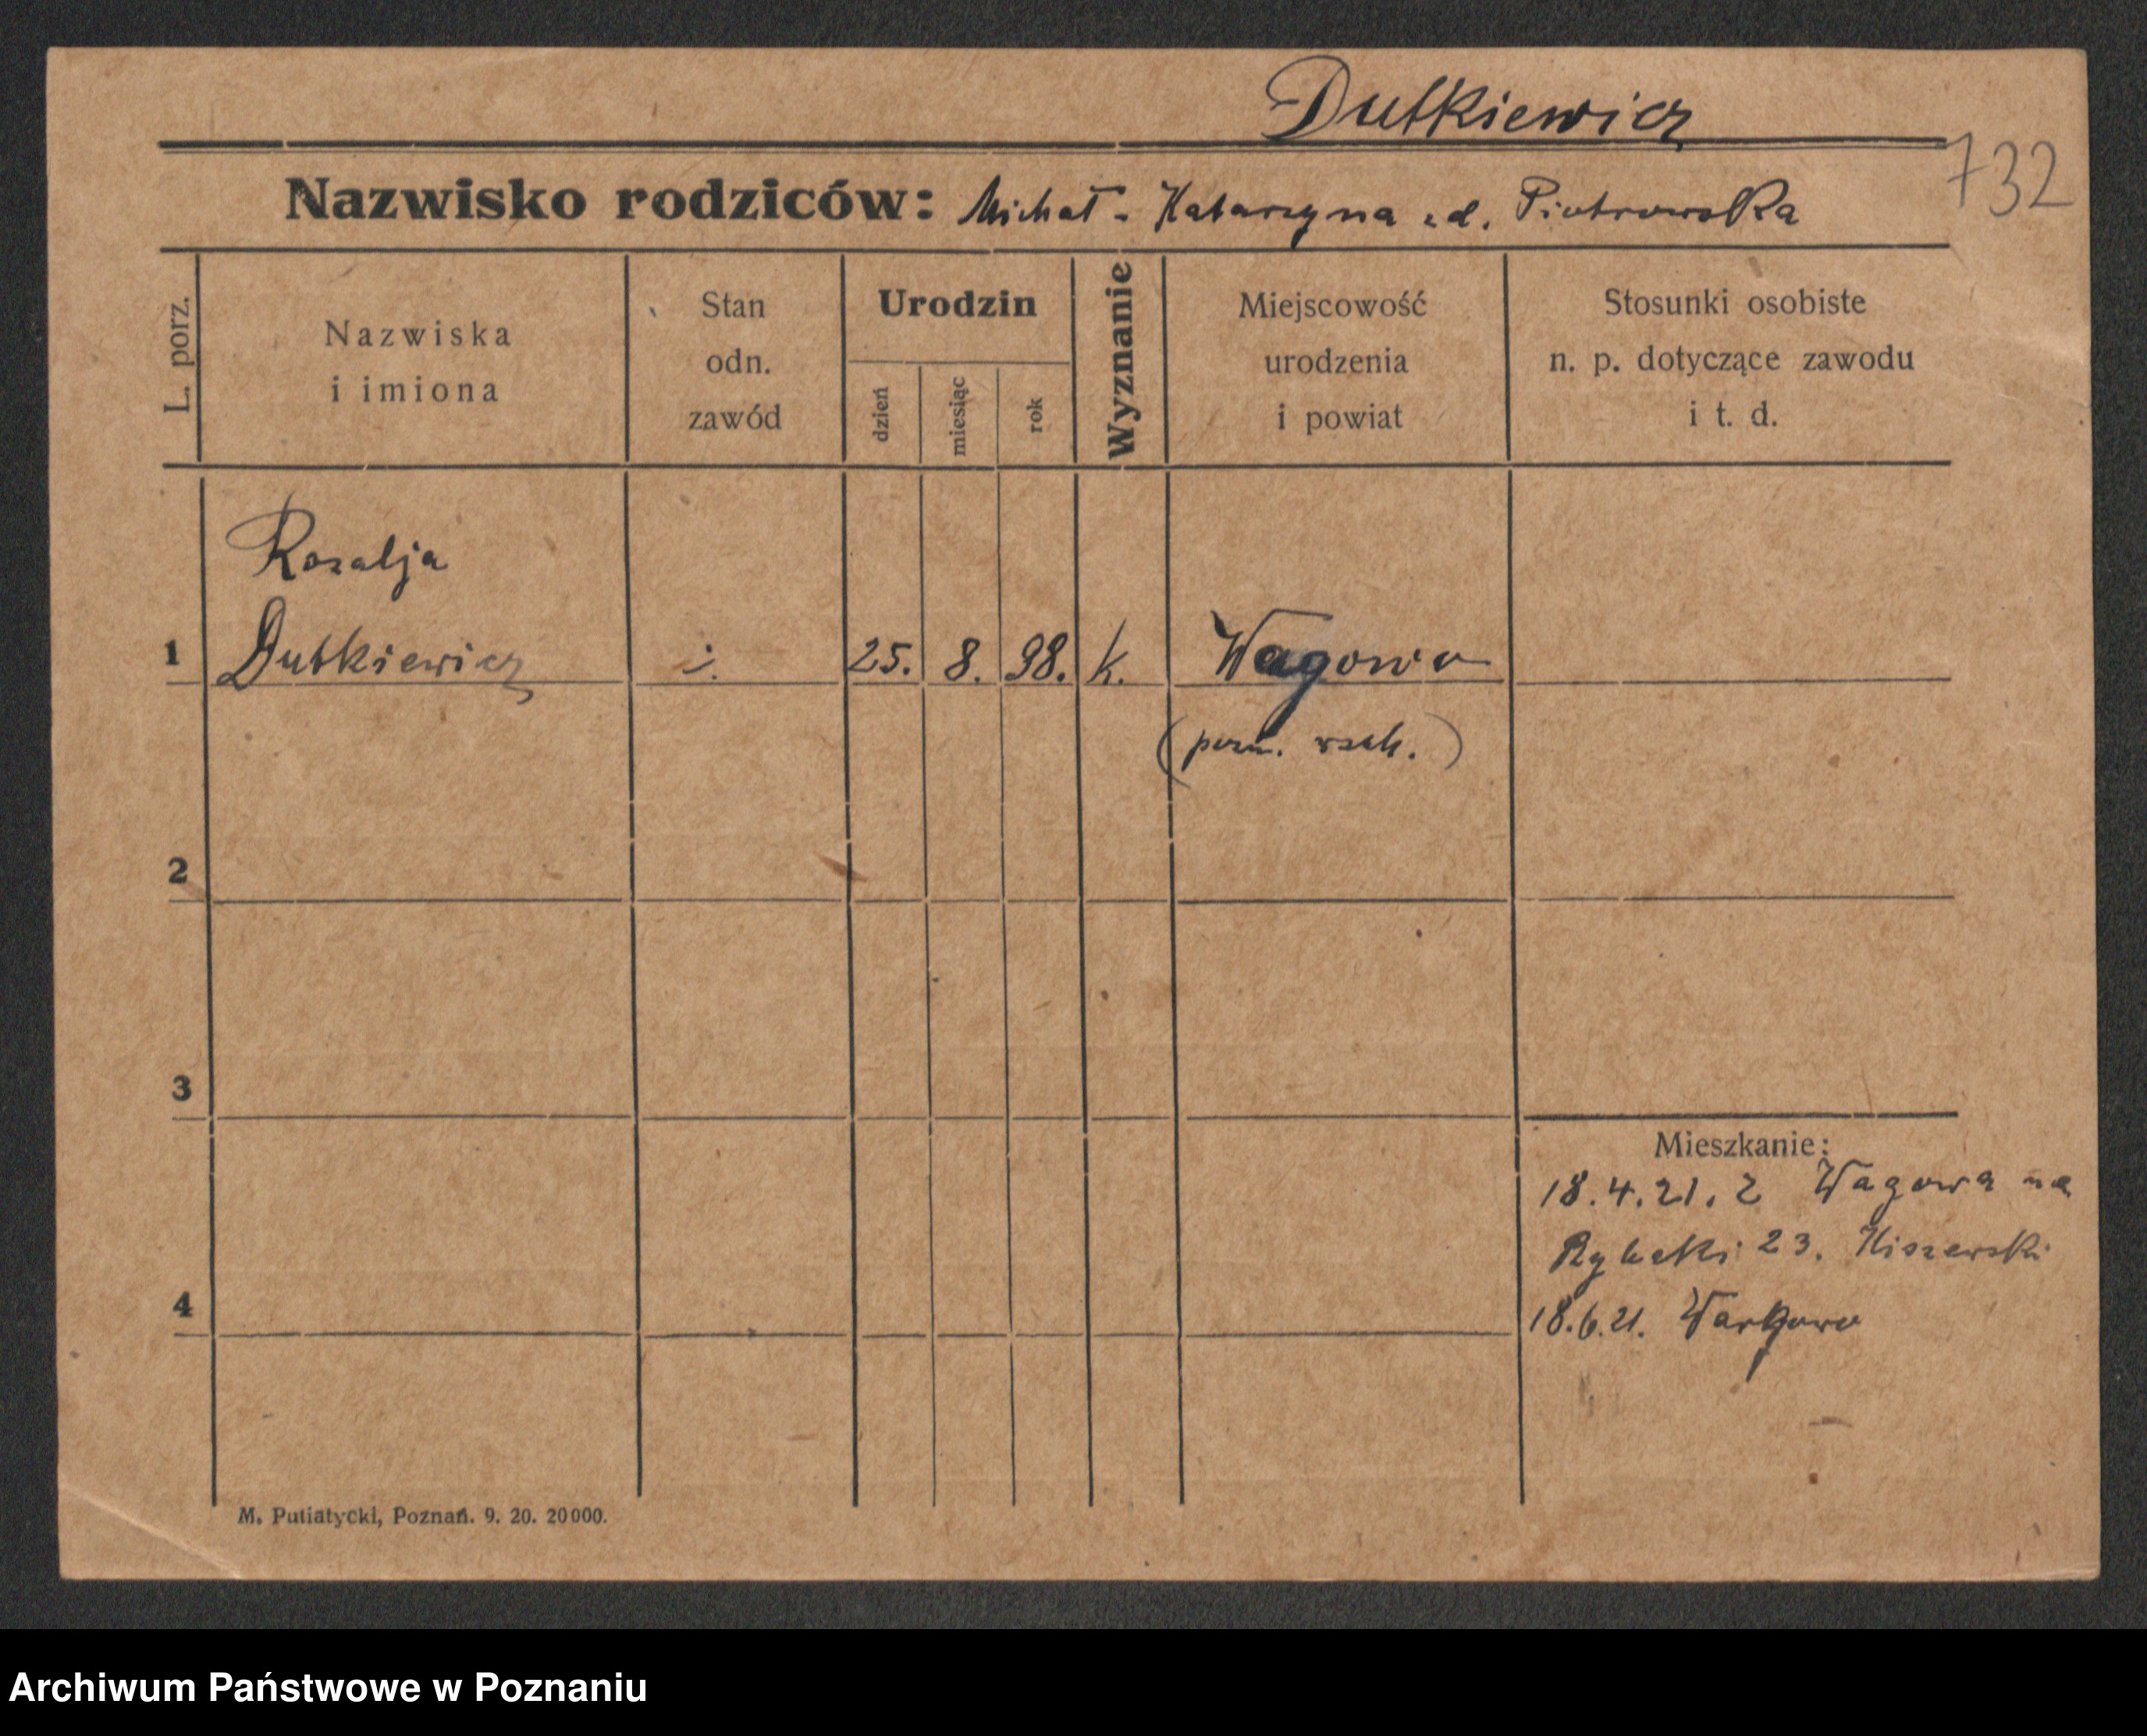 Dutkiewicz
732
Nazwisko rodziców: Michał - Katarzyna zd. Piotrowska
L. porz.
Nazwiska
i imiona
Stan
odn.
zawód
Urodzin
dzień
miesiąc
rok
Wyznanie
Miejscowość
urodzenia
i powiat
Stosunki osobiste
n. p. dotyczące zawodu
i t. d.
Rozalja
1 Dutkiewicz 25. 8. 98. k. Wagowo
(pozn. wsch.)
2
3
Mieszkanie:
18.4.21. z Wagowa na
Rybaki 23. Kiszewski
4
18.6.21. Wargowo
M. Putiatycki, Poznań. 9. 20. 20000.
Archiwum Państwowe w Poznaniu